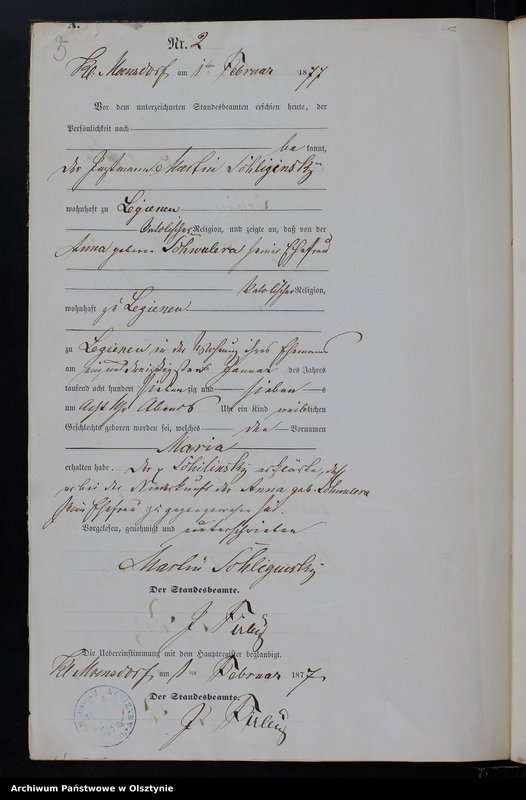 Nr. 2
Kl. Moensdorf, am 1ten Februar 1877
Vor dem unterzeichneten Standesbeamten erschien heute, der
Persönlichkeit nach
be kannt,
der Martin Schliginsky
wohnhaft zu Legienen
katolischer Religion, und zeigte an, daß von der
Anna geborne seiner Ehefrau
katolischer Religion,
wohnhaft zu Legienen
zu Legienen in der Wohnung ihres Ehemanns
am einunddreißigsten Januar des Jahres
tausend acht hundert sieben zig und sieben s
um Acht Uhr Abends Uhr ein Kind weiblichen
Geschlechts geboren worden sei, welches den Vornamen
Maria
erhalten habe. Der erklärte, daß
er bei der Niederkunft der Anna geb.
seine Ehefrau zugegen gewesen sei.
Vorgelesen, genehmigt und unterschrieben
Martin Schliginsky
Der Standesbeamte.
J.
Die Uebereinstimmung mit dem Hauptregister beglaubigt.
Kl. Moensdorf, am 1 Februar 1877
Der Standesbeamte.
J.
Archiwum Państwowe w Olsztynie